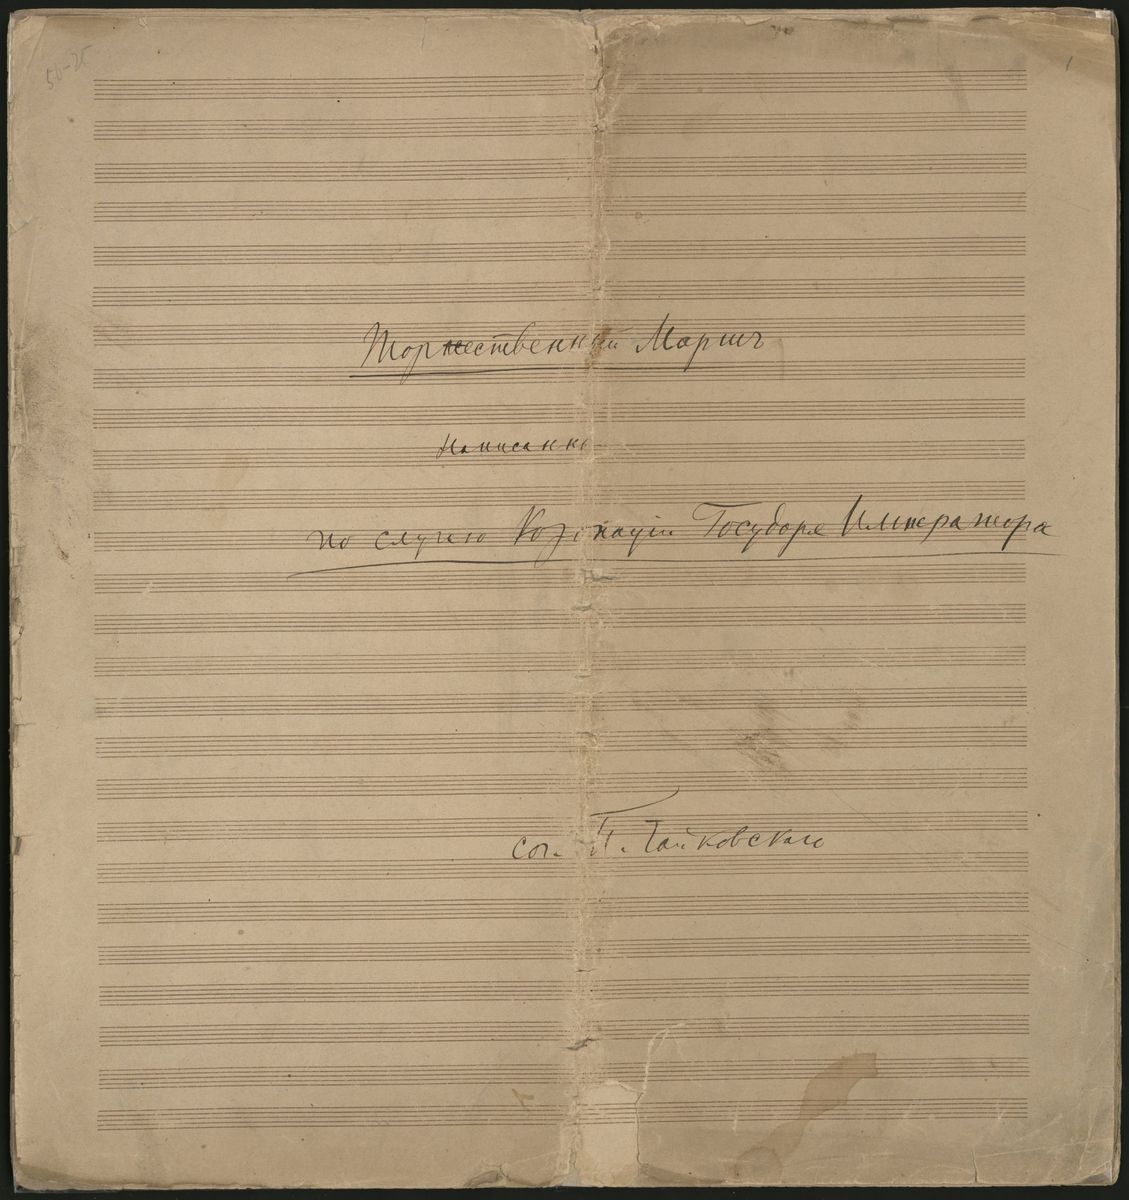 50-25
1
Торжественный Маршъ
Написанны
по случаю Коронаціи Государя Императора
соч. П. Чайковскаго